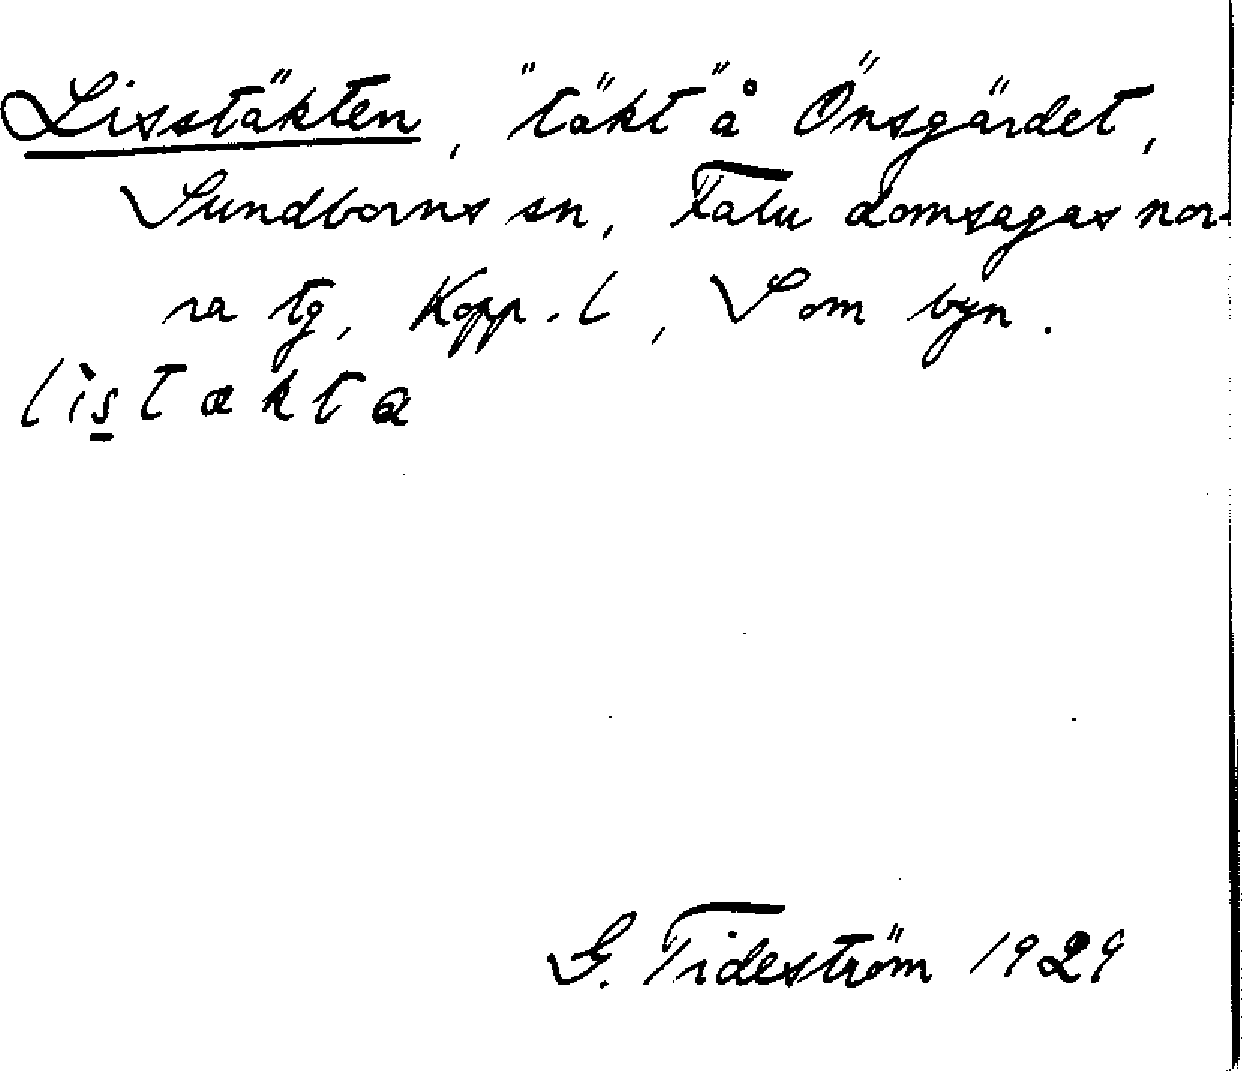 Lisstäkten, "täkt" å Önsgärdet,
Sundborns sn, Falu domsagas nor-
ra tg, Kopp. l, S om byn.
lìs̲takta
G. Tideström 1929